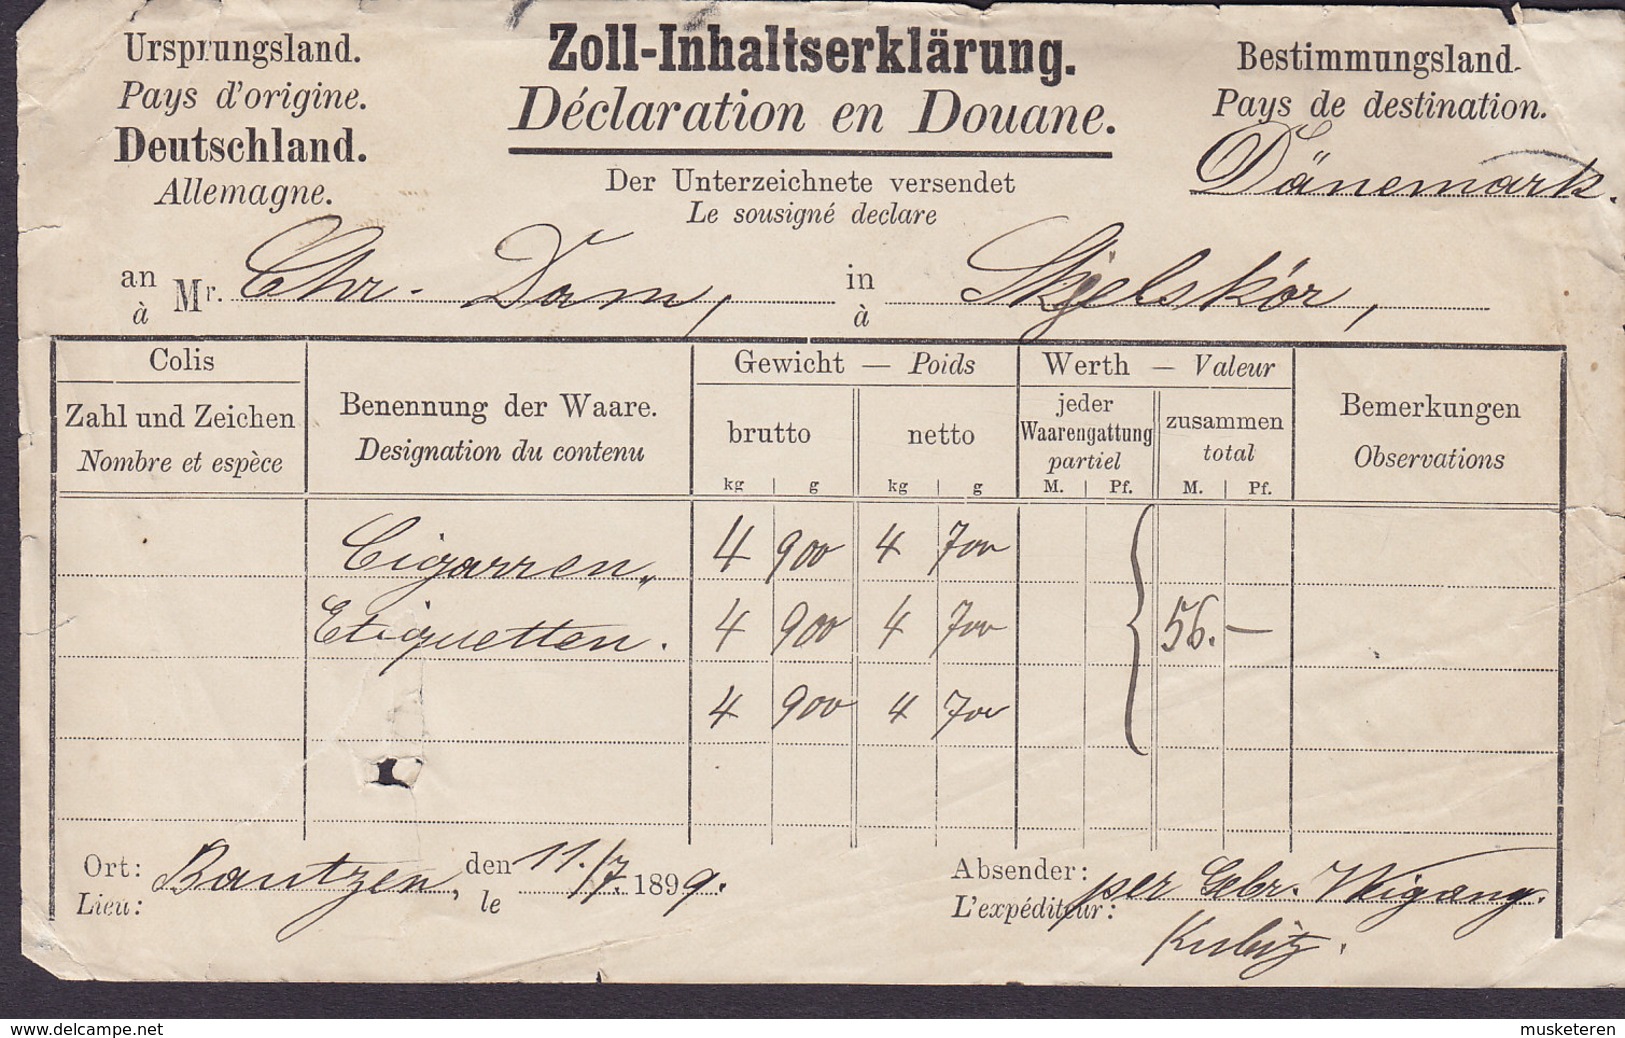 Ursprungsland.
Pays d'origine.
Deutschland.
Allemagne.
Zoll-Inhaltserklärung.
Déclaration en Douane.
Der Unterzeichnete versendet
Le sousigné declare
Bestimmungsland.
Pays de destination.
Dänemark.
an Mr. Chr. Dam, in Skjelskör,
à à
Colis
Zahl und Zeichen
Nombre et espèce
Benennung der Waare.
Designation du contenu
Gewicht — Poids
brutto netto
kg g kg g
Werth — Valeur
jeder
Waarengattung
partiel
M. Pf.
zusammen
total
M. Pf.
Bemerkungen
Observations
Cigarren„ 4 900 4 700
Etiquetten. 4 900 4 700 56.—
4 900 4 700
Ort: Bautzen, den 11./7. 1899.
Lieu: le
Absender: per Gebr. Weigang.
L'expéditeur:
Kubitz.
delcampe.net
musketeren